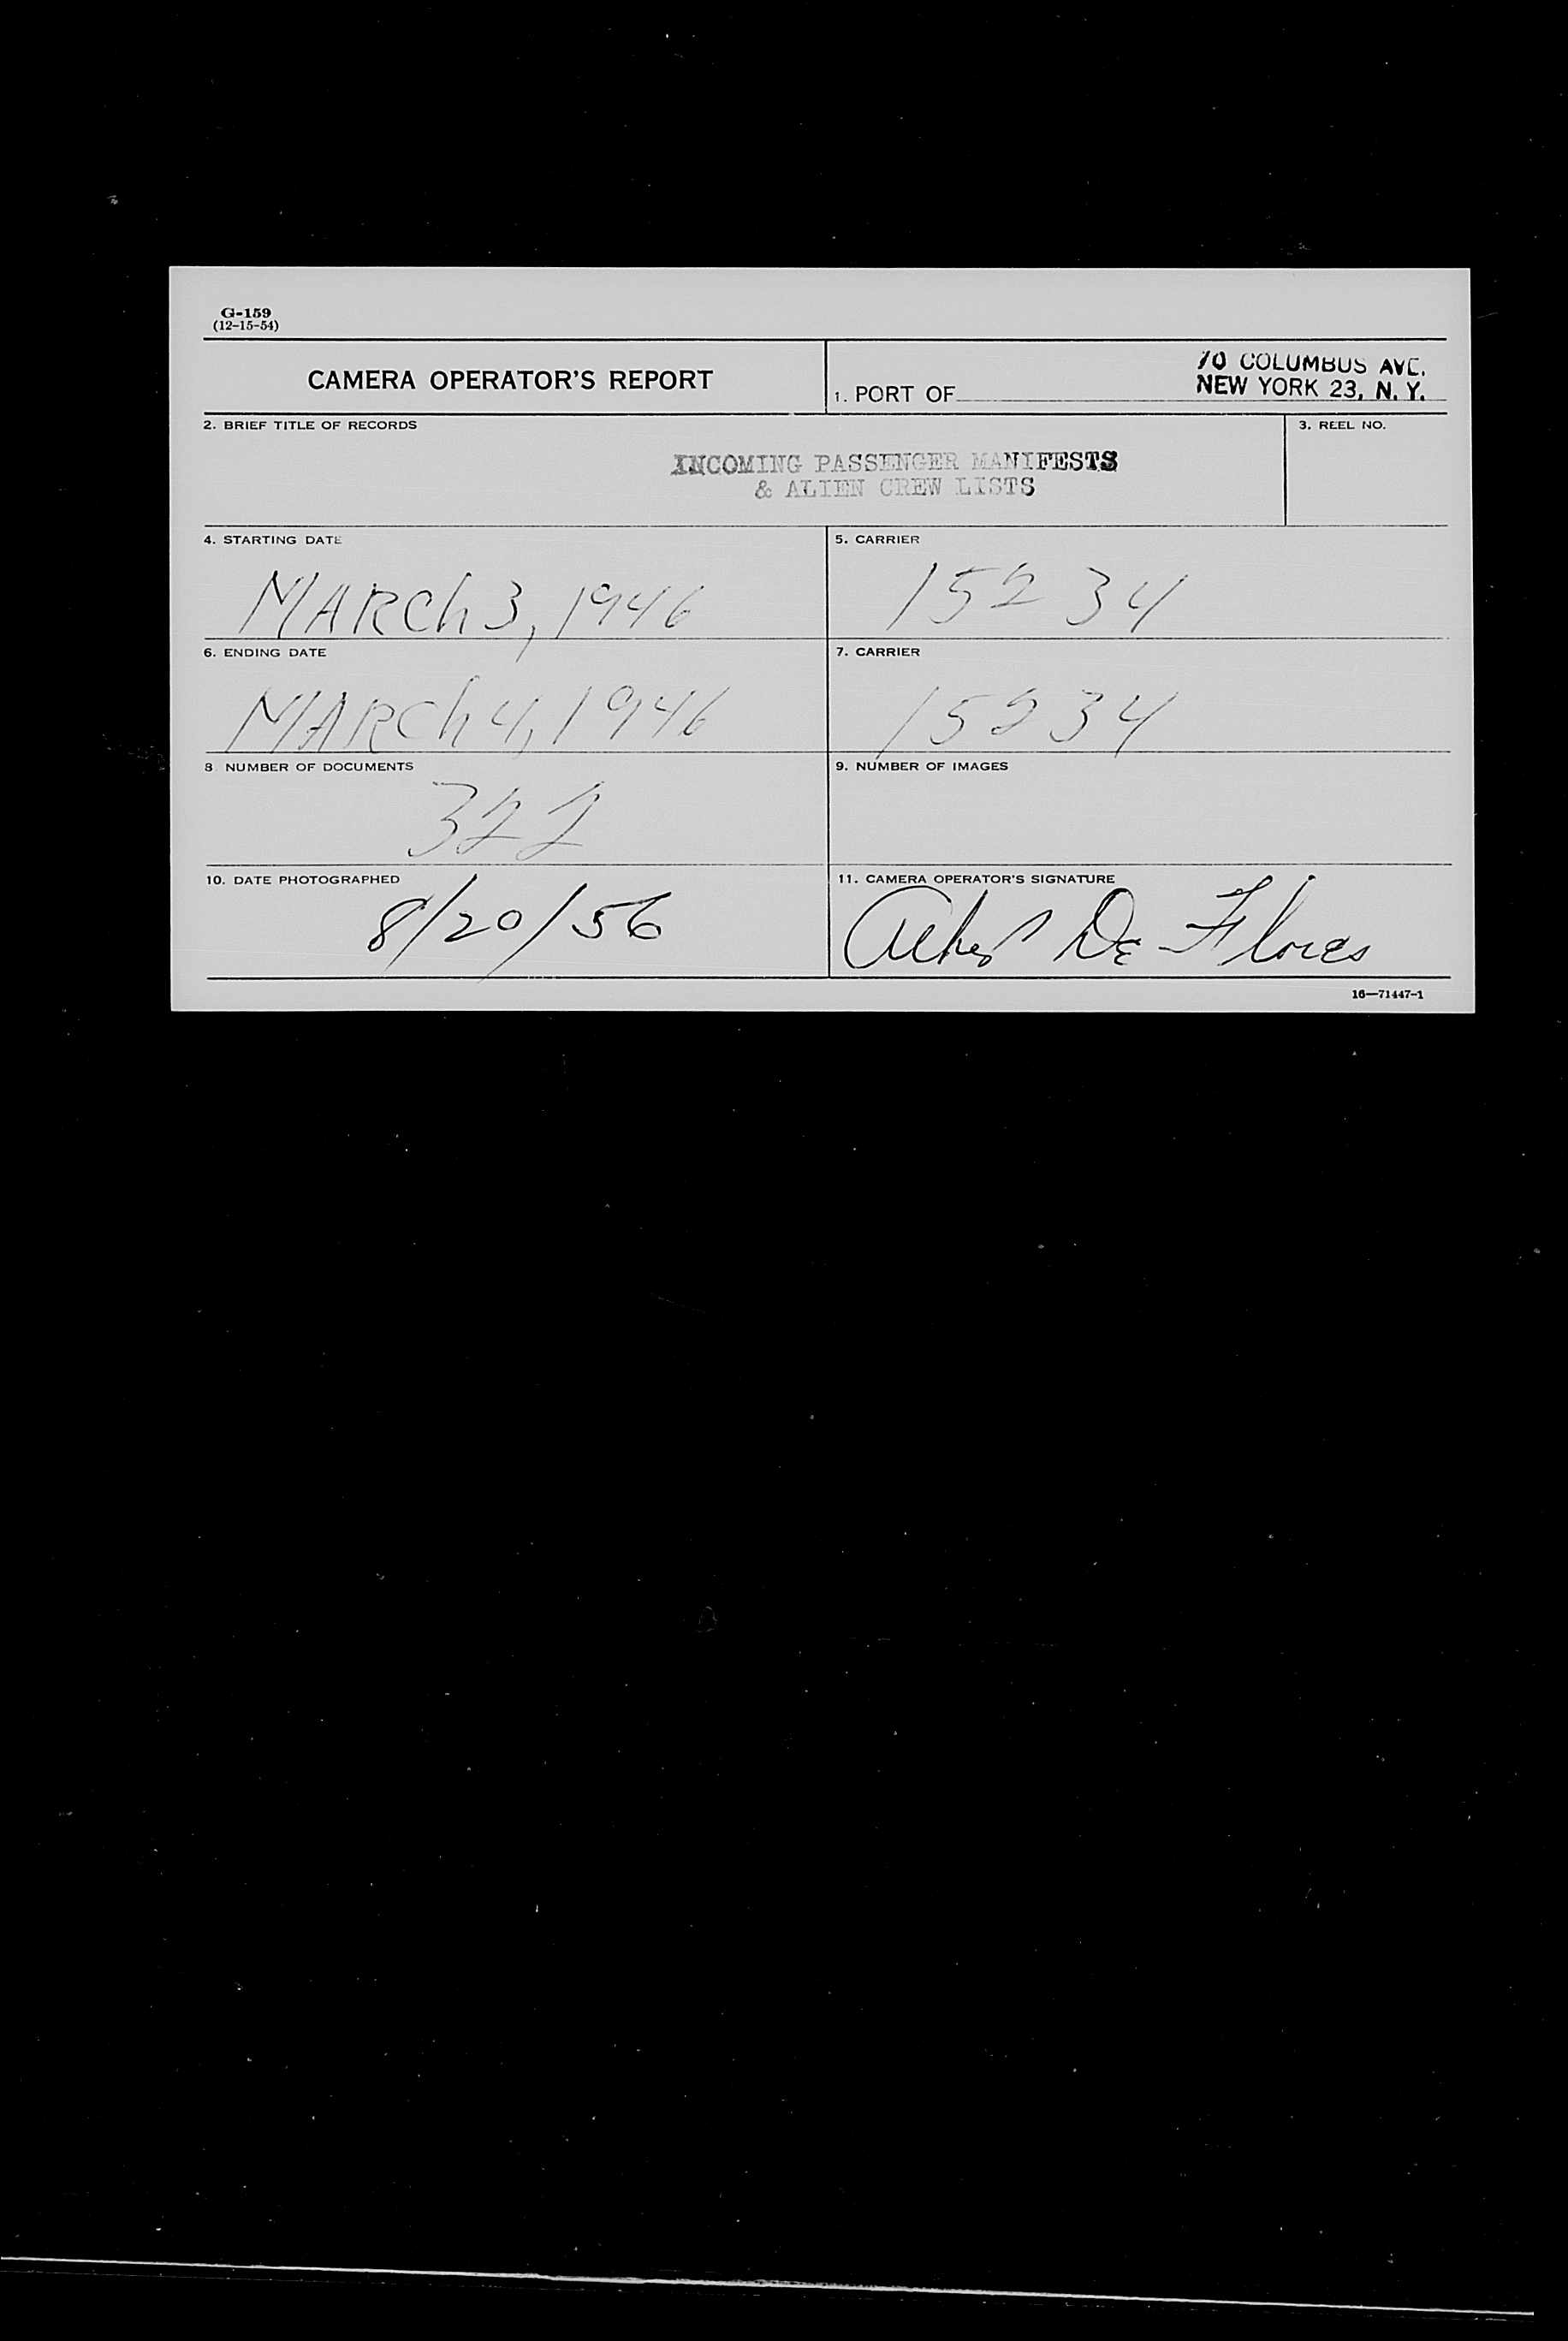 G-159
(12-15-54)
CAMERA OPERATOR'S REPORT
1. PORT OF
70 COLUMBUS AVE.
NEW YORK 23, N. Y.
2. BRIEF TITLE OF RECORDS
INCOMING PASSENGER MANIFESTS
& ALIEN CREW LISTS
3. REEL NO.
4. STARTING DATE
MARCh 3, 1946
5. CARRIER
15234
6. ENDING DATE
MARCh 4, 1946
7. CARRIER
15234
8. NUMBER OF DOCUMENTS
322
9. NUMBER OF IMAGES
10. DATE PHOTOGRAPHED
8/20/56
11. CAMERA OPERATOR'S SIGNATURE
De Flores
16—71447-1